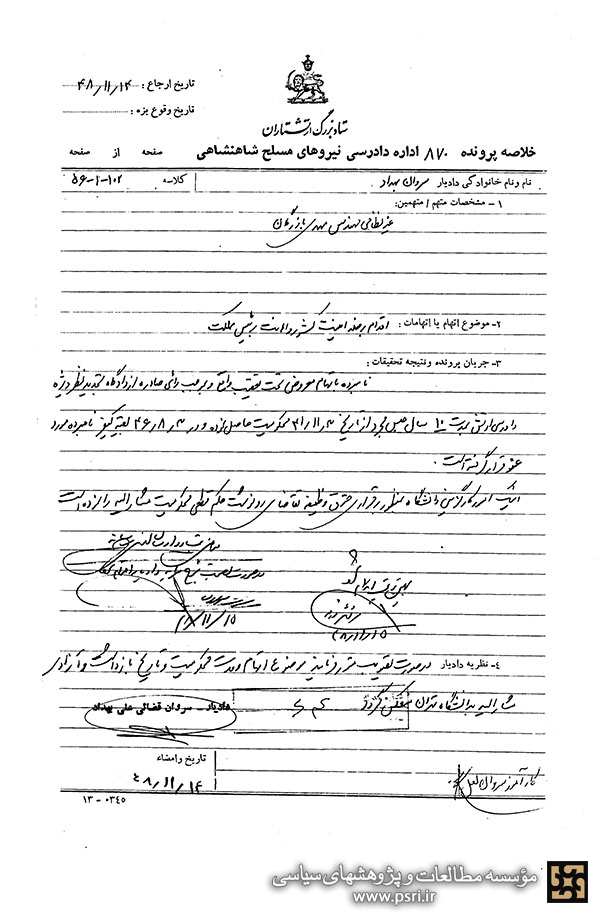 تاریخ ارجاع : ۴۸/۱۱/۱۴
تاریخ وقوع بزه :
ستاد بزرگ ارتشتاران
خلاصه پرونده ۸۷۰ اداره دادرسی نیروهای مسلح شاهنشاهی صفحه از صفحه
نام ونام خانوادگی دادیار سروان بهداد کلاسه ۵۶-۲-۱۰۲
۱ - مشخصات متهم / متهمین:
غیر نظامی مهندس مهدی بازرگان
۲- موضوع اتهام یا اتهامات : اقدام بر ضد امنیت کشور و اهانت به رئیس مملکت
۳- جریان پرونده ونتیجه تحقیقات :
نامبرده باتهام معروض تحت تعقیب واقع و بموجب رای صادره از دادگاه تجدید نظر ویژه
دادرسی ارتش بمدت ۱۰ سال حبس مجرد از تاریخ ۴۱/۱۱/۳ محکومیت حاصل نموده و در ۴۶/۸/۳ بقیه کیفر نامبرده مورد
عفو قرار گرفته است .
اینک امور کارگزینی دانشگاه بمنظور برقراری حقوق وظیفه تقاضای رونوشت حکم قطعی محکومیت مشارالیه را نموده است
۴۸/۱۱/۱۵
۴۸/۱۱/۱۵
۴- نظریه دادیار در صورت تصویب مقرر فرمایند موضوع اتهام ومدت محکومیت و تاریخ بازداشت و آزادی
مشارالیه بدانشگاه تهران منعکس گردد
دادیار - سروان قضائی علی بهداد
تاریخ وامضاء
۴۸/۱۱/۱۴
کارآموز سروان
۱۳ - ۰۳۴۵
مؤسسه مطالعات و پژوهشهای سیاسی
www.psri.ir